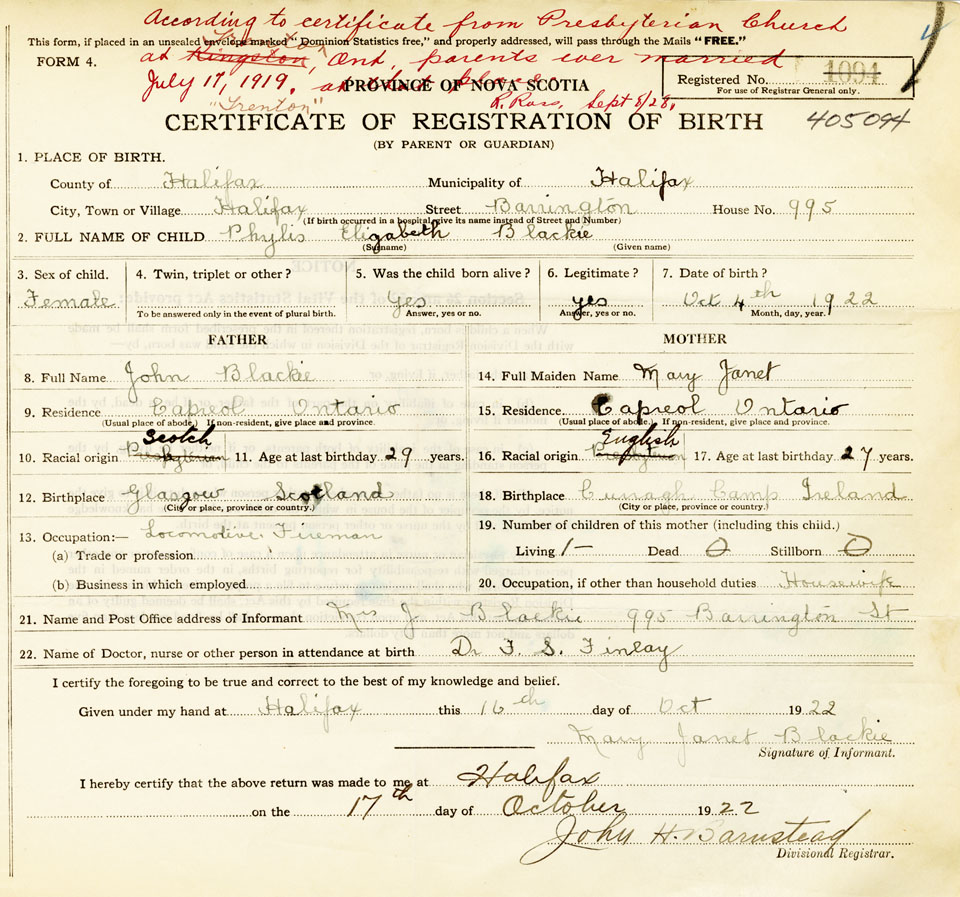 According to certificate from Presbyterian Church
This form, if placed in an unsealed envelope marked "Dominion Statistics free," and properly addressed, will pass through the Mails "FREE."
Trenton
at Kingston, Ont, parents wer married
FORM 4.
July 17, 1919. at that place.
PROVINCE OF NOVA SCOTIA
Registered No. 1094
For use of Registrar General only.
"Trenton"
R. Ross, Sept 8/28.
CERTIFICATE OF REGISTRATION OF BIRTH 405094
(BY PARENT OR GUARDIAN)
1. PLACE OF BIRTH.
County of Halifax Municipality of Halifax
City, Town or Village Halifax Street Barrington House No. 995
(If birth occurred in a hospital, give its name instead of Street and Number)
2. FULL NAME OF CHILD Phylis Elizabeth Blackie
(Surname) (Given name)
3. Sex of child. 4. Twin, triplet or other? 5. Was the child born alive? 6. Legitimate? 7. Date of birth?
Female Yes yes Oct 4th 1922
To be answered only in the event of plural birth. Answer, yes or no. Answer, yes or no. Month, day, year.
FATHER MOTHER
8. Full Name John Blackie 14. Full Maiden Name Mary Janet
9. Residence Capreol Ontario 15. Residence. Capreol Ontario
(Usual place of abode.) If non-resident, give place and province. (Usual place of abode.) If non-resident, give place and province.
Scotch English
10. Racial origin Presbyterian 11. Age at last birthday 29 years. 16. Racial origin Presbyterian 17. Age at last birthday 27 years.
12. Birthplace Glasgow Scotland 18. Birthplace Curragh Camp Ireland
(City or place, province or country.) (City or place, province or country.)
13. Occupation:— Locomotive Fireman 19. Number of children of this mother (including this child.)
(a) Trade or profession Living 1— Dead 0 Stillborn 0
(b) Business in which employed 20. Occupation, if other than household duties Housewife
21. Name and Post Office address of Informant Mrs J Blackie 995 Barrington St
22. Name of Doctor, nurse or other person in attendance at birth Dr F. S. Finlay
I certify the foregoing to be true and correct to the best of my knowledge and belief.
Given under my hand at Halifax this 16th day of Oct 1922
Mary Janet Blackie
Signature of Informant.
I hereby certify that the above return was made to me at Halifax
on the 17th day of October 1922
John H. Barnstead
Divisional Registrar.